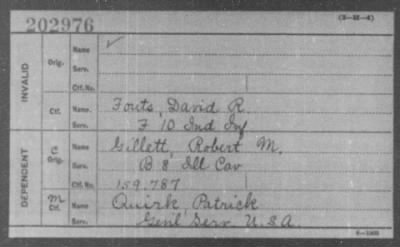 202976
(3-3E-4)
INVALID
Orig.
Name
✓
Serv.
Ctf. No.
Ctf.
Name.
Fouts, David R.
Serv.
F 10 Ind Inf
DEPENDENT
C
Orig.
Name
Gillett, Robert M.
Serv.
B 8 Ill Cav
Ctf. No.
159.787
M
Ctf.
Name
Quirk, Patrick
Serv.
Genl Serv U.S.A.